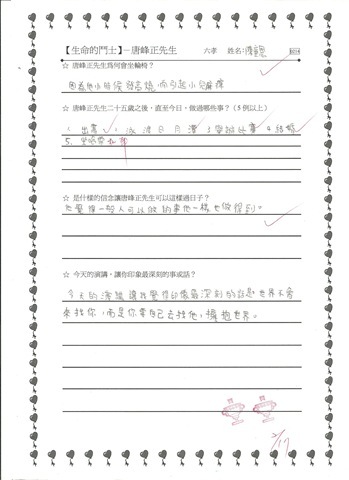 【生命的鬥士】─唐峰正先生 六孝 姓名:
☆ 唐峰正先生為何會坐輪椅?
因為他小時候發高燒,而引起小兒麻痺
☆ 唐峰正先生二十五歲之後,直至今日,做過哪些事?(5 例以上)
1. 出書 2. 泳渡日月潭 3. 4. 結婚
5.
☆ 是什樣的信念讓唐峰正先生可以這樣過日子?
他覺得一般人可以做的事他一樣也做得到。
☆ 今天的演講,讓你印象最深刻的事或話?
今天的演講讓我覺得印象最深刻的話是世界不會
來找你,而是你要自己去找他,擁抱世界。
2/17